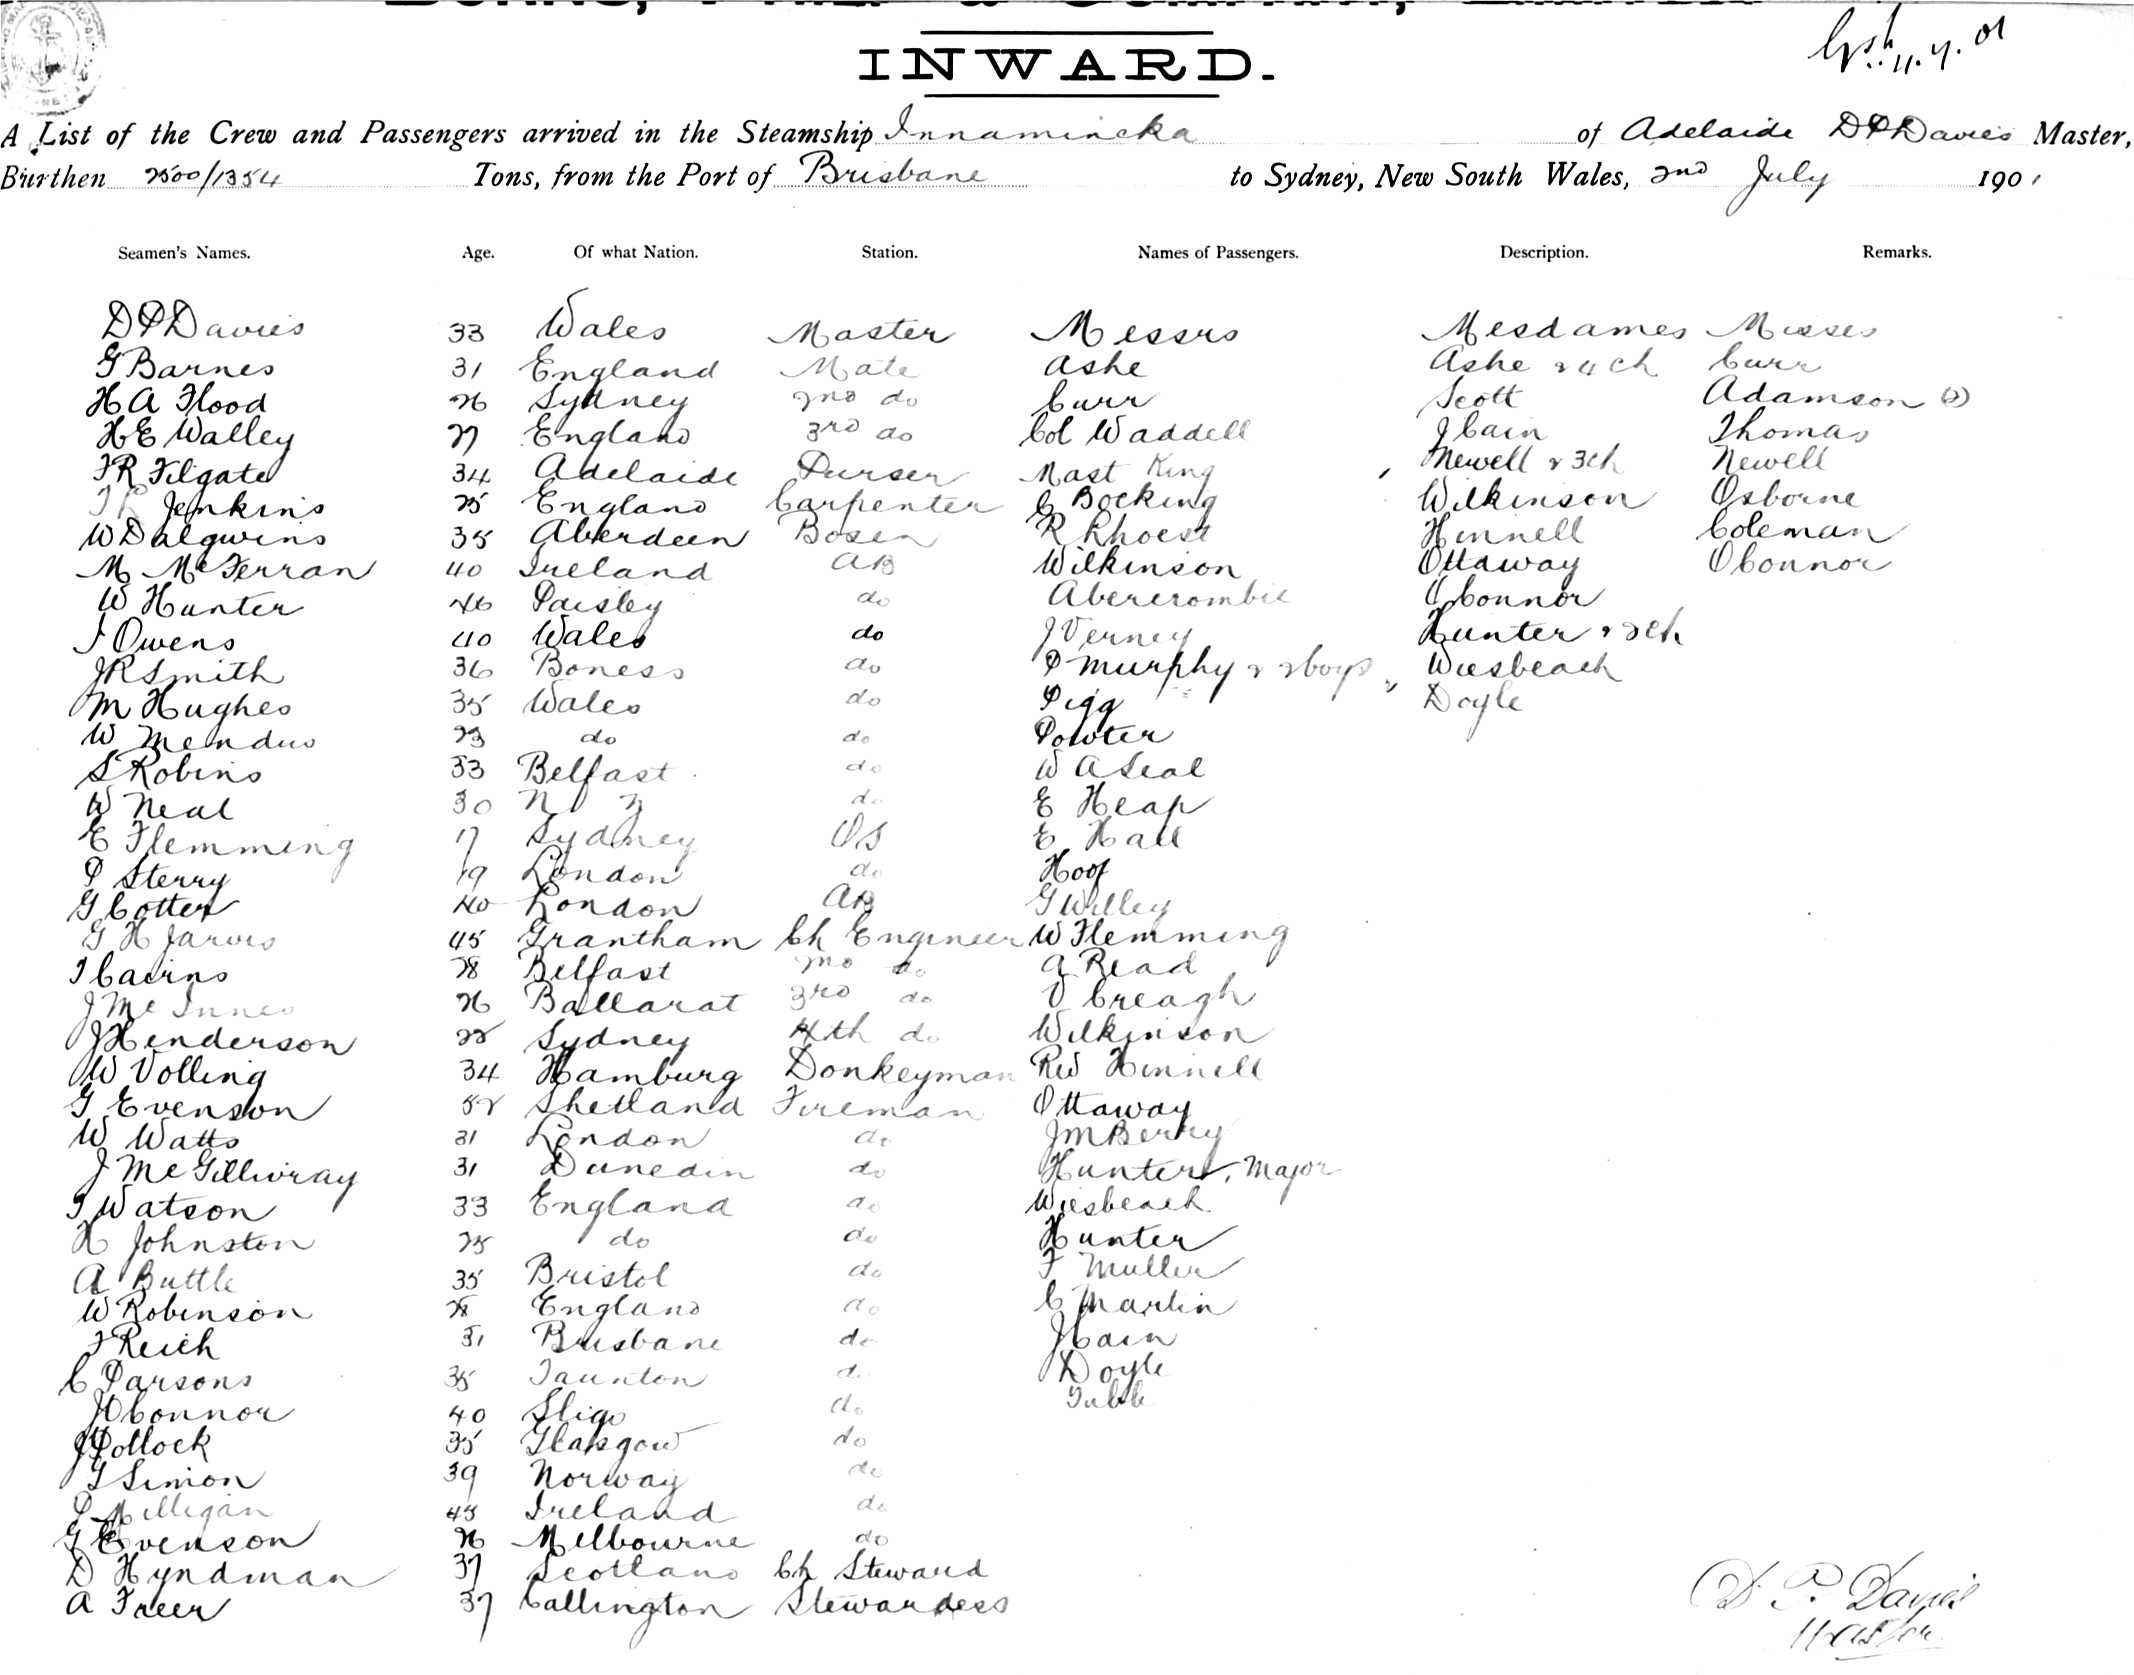 INWARD.
A List of the Crew and Passengers arrived in the Steamship Innamincka of Adelaide D P Davies Master,
Burthen 2500/1354 Tons, from the Port of Brisbane to Sydney, New South Wales, 2nd July 1901
Seamen's Names. Age. Of what Nation. Station. Names of Passengers. Description. Remarks.
D P Davies 33 Wales Master Messrs Mesdames Misses
G Barnes 31 England Mate Ashe Ashe & 4 ch Curr
H A Flood 26 Sydney 2nd do Curr Scott Adamson (2)
H E Walley 27 England 3rd do Col Waddell J Cain Thomas
F R Filgate 34 Adelaide Purser Mast King Newell & 3 ch Newell
Jenkins 25 England Carpenter C Bocking Wilkinson Osborne
W Dalgwins 35 Aberdeen Bosen R Rhoest Hinnell Coleman
M McFerran 40 Ireland AB Wilkinson Ottaway OConnor
W Hunter 46 Paisley do Abercrombie OConnor
J Owens 40 Wales do J Verney Hunter & 2 ch
J R Smith 36 Boness do P Murphy & 2 boys Wiesbeach
M Hughes 35 Wales do Pigg Doyle
W Mendus 23 do do Powter
S Robins 33 Belfast do W A Seal
W Neal 30 N Z do E Heap
E Flemming 17 Sydney OS E Hall
P Sterry 19 London do Hoof
G Cotter 40 London AB G Willey
G H Jarvis 45 Grantham Ch Engineer W Flemming
T Cairns 28 Belfast 2nd do A Read
J McInnes 26 Ballarat 3rd do O Creagh
J Henderson 22 Sydney 4th do Wilkinson
W Volling 34 Hamburg Donkeyman Rev Hinnell
G Evenson 52 Shetland Fireman Ottaway
W Watts 31 London do J M Berry
J McGillivray 31 Dunedin do Hunter, Major
T Watson 33 England do Wiesbeach
H Johnston 25 do do Hunter
A Buttle 35 Bristol do F Muller
W Robinson 28 England do C Martin
F Reich 31 Brisbane do J Cain
C Parsons 35 Taunton do Doyle
J OConnor 40 Sligo do Tubb
J Pollock 35 Glasgow do
G Simon 39 Norway do
P Milligan 45 Ireland do
G Evenson 26 Melbourne do
D Hyndman 37 Scotland Ch Steward
A Freer 37 Callington Stewardess
D. P. Davies
Master